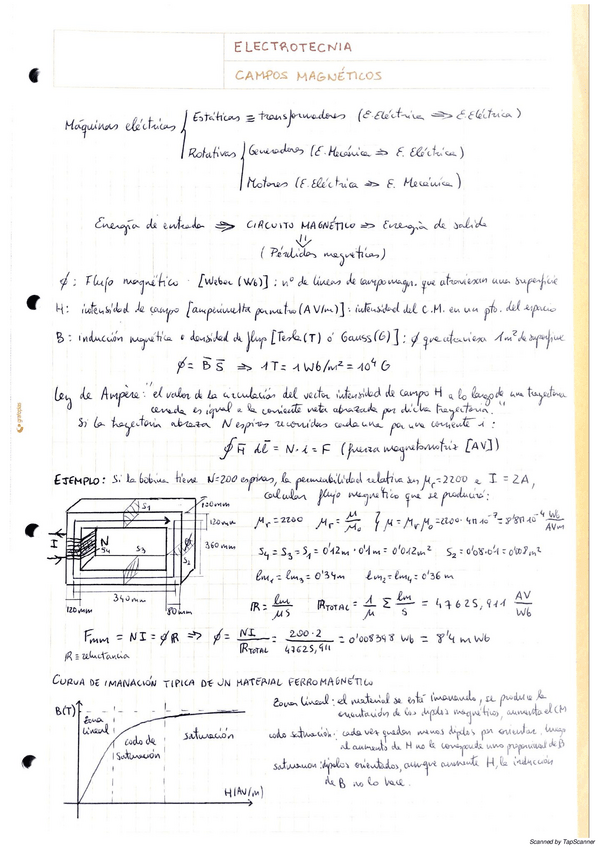 ELECTROTECNIA
CAMPOS MAGNÉTICOS
Máquinas eléctricas
Estáticas ≡ transformadores (E. Eléctrica ⇒ E. Eléctrica)
Rotativas
Generadores (E. Mecánica ⇒ E. Eléctrica)
Motores (E. Eléctrica ⇒ E. Mecánica)
Energía de entrada ⇒ CIRCUITO MAGNÉTICO ⇒ Energía de salida
(Pérdidas magnéticas)
ϕ: Flujo magnético [Weber (Wb)]: nº de líneas de campo magn. que atraviesan una superficie
H: intensidad de campo [amperivuelta por metro (AV/m)]: intensidad del C.M. en un pto. del espacio
B: inducción magnética o densidad de flujo [Tesla (T) ó Gauss (G)]: ϕ que atraviesa 1m² de superficie
ϕ = B̄ S̄ ⇒ 1T = 1 Wb/m² = 10⁴ G
Ley de Ampère: "el valor de la circulación del vector intensidad de campo H a lo largo de una trayectoria
cerrada es igual a la corriente neta abrazada por dicha trayectoria."
Si la trayectoria abraza N espiras recorridas cada una por una corriente i:
∮ H̄ dl̄ = N · i = F (fuerza magnetomotriz [AV])
EJEMPLO: Si la bobina tiene N=200 espiras, la permeabilidad relativa μr=2200 e I = 2A,
calcular flujo magnético que se producirá:
S1
120mm
120mm
360mm
I
N
S4
S3
ϕ
S2
340mm
120mm
80mm
μr = 2200 μr = μ/μ₀ } μ = μr μ₀ = 2200 · 4π 10⁻⁷ =
S4 = S3 = S1 = 0'12m · 0'1m = 0'012m² S2 = 0'08·0'1 = 0'008m²
lm1 = lm3 = 0'34m lm2 = lm4 = 0'36m
ℝ = lm/μS ℝTOTAL = 1/μ Σ lm/S = 47625,911 AV/Wb
Fmm = NI = ϕ ℝ ⇒ ϕ = NI/ℝTOTAL = 200·2/47625,911 = 0'008398 Wb = 8'4 mWb
ℝ ≡ reluctancia
CURVA DE IMANACIÓN TIPICA DE UN MATERIAL FERROMAGNÉTICO
B(T)
zona
lineal
codo de
saturación
saturación
H(AV/m)
zona lineal: el material se está imanando, se produce la
orientación de los dipolos magnéticos, aumenta el CM
codo saturación: cada vez quedan menos dipolos por orientar, luego
al aumento de H no le corresponde uno proporcional de B
saturacion: dipolos orientados, aunque aumente H, la inducción
de B no lo hace.
Scanned by TapScanner